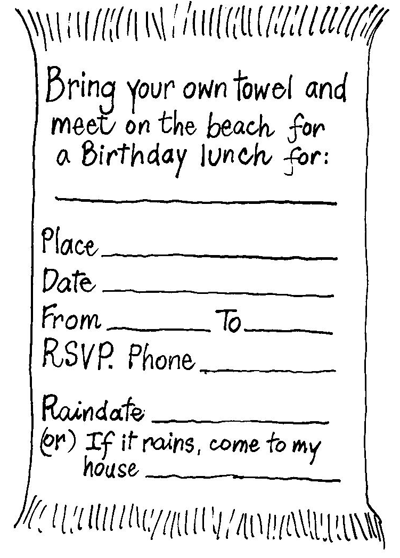 Bring your own towel and
meet on the beach for
a Birthday lunch for:
Place
Date
From To
RSVP. Phone
Raindate
(or) If it rains, come to my
house